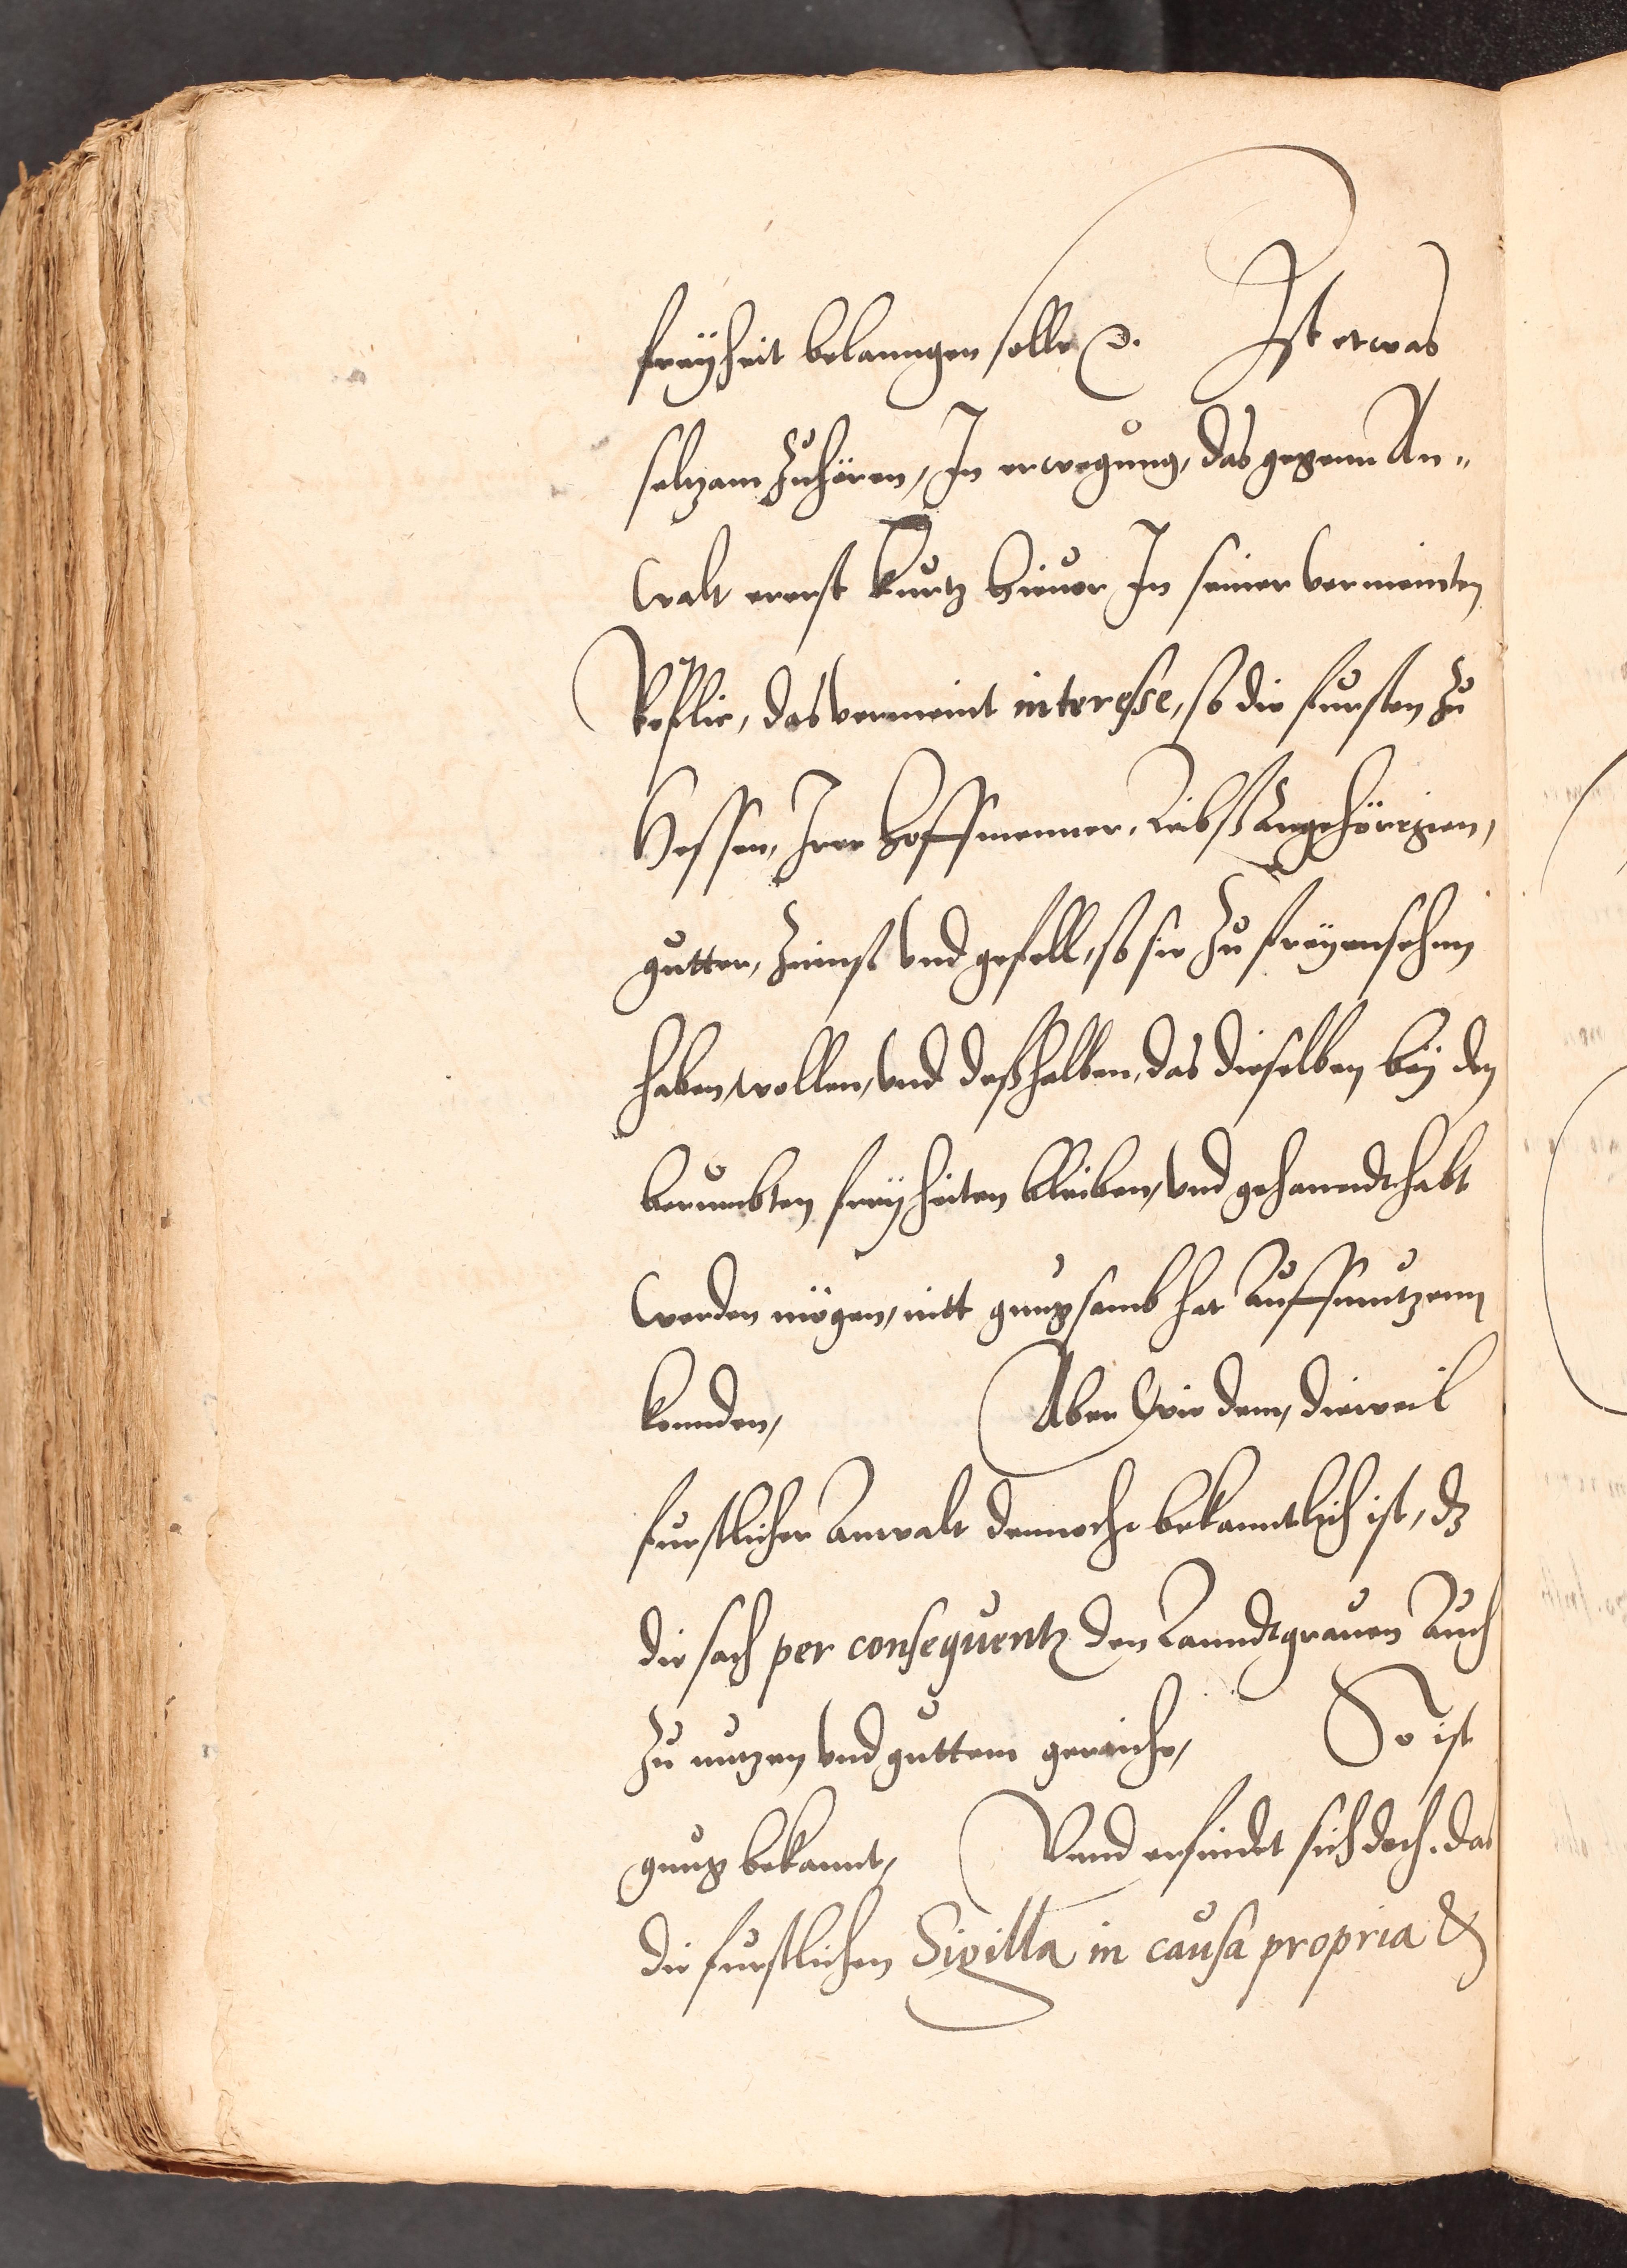 freÿheit belanngen solle etc. Ist etwas
seltzam zuhören, In erwegung, das gegenn An„
walt ererst kurtz hieuor In seiner vermeinten
Replic, das vermeint interesse, so die fursten zu
Hessen, Irer Hoffmenner, Leibß Angehörigen,
gutter, Zinnß vnd gefell, so sie zu freÿensehen
haben, wollen, vnd deßhalben, das dieselben beÿ den
berumbten freÿheiten bleiben, vnd gehanndthabt
werden mögen, nitt gnugsamb hat Auffmutzenn
konnden, Aber wie dem, dieweil
furstlicher Anwalt dennoch bekanntlich ist, dz
die sach per consequentz den Lanndtgrauen Auch
zu nutzen, vnd guttem gereiche, So ist
gnug bekannt, Vnnd erfindet sich doch, das
die furstlichen Sigilla in causa propria &